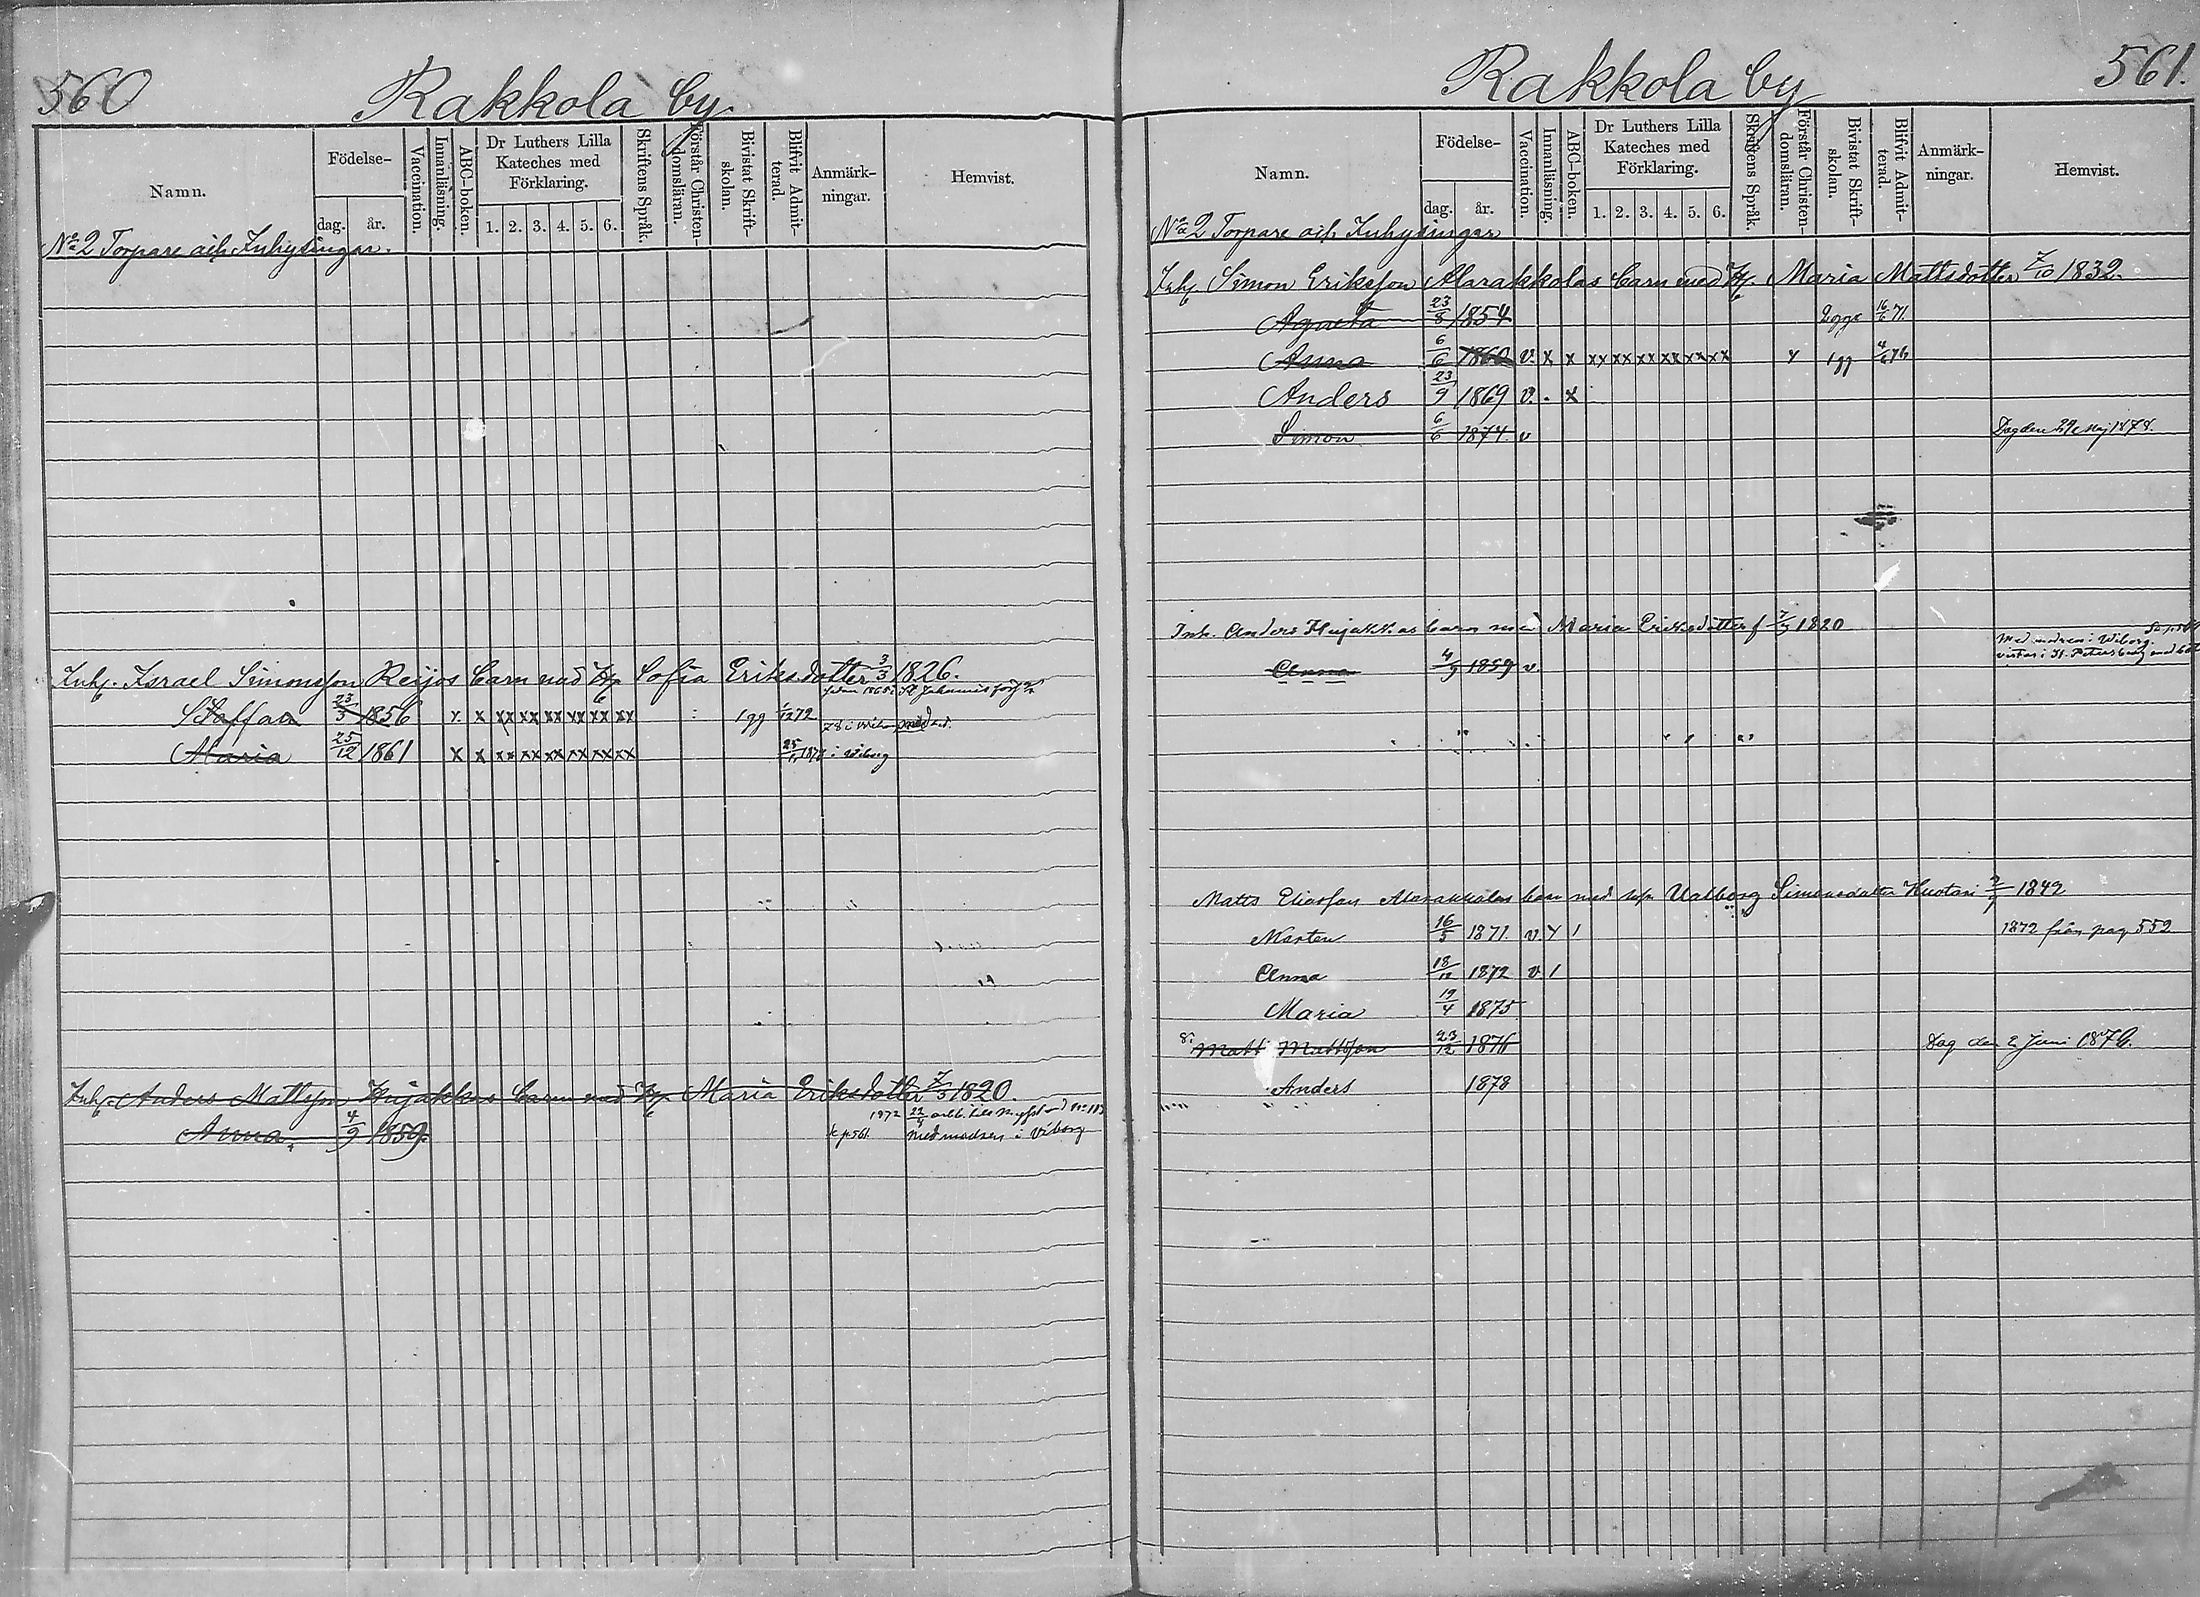 560
Rakkola by
Namn.
Födelse-
dag. år.
Vaccination.
Innanläsning.
ABC-boken.
Dr Luthers Lilla Kateches med Förklaring.
1. 2. 3. 4. 5. 6.
Skriftens Språk.
Förstår Christen-domsläran.
Bivistat Skrift-skolan.
Blifvit Admit-terad.
Anmärk-ningar.
Hemvist.
No 2 Torpare och Inhysingar.
Inh. Israel Simonsson Reijos barn med H. Sofia Eriksdotter 3/3 1826.
Staffan 23/3 1856 x x xx xx xx xx xx xx 1gg 1/12 72
Maria 25/12 1861 x x xx xx xx xx xx xx 25/11 1878 i Wiborg
Inh. Anders Mattsson Hujakkas barn med H. Maria Eriksdotter 7/3 1820.
Anna 4/9 1859. k p 561. med modren i Viborg
561.
Rakkola by
Namn.
Födelse-
dag. år.
Vaccination.
Innanläsning.
ABC-boken.
Dr Luthers Lilla Kateches med Förklaring.
1. 2. 3. 4. 5. 6.
Skriftens Språk.
Förstår Christen-domsläran.
Bivistat Skrift-skolan.
Blifvit Admit-terad.
Anmärk-ningar.
Hemvist.
No 2 Torpare och Inhysingar
Inh. Simon Eriksson Alarakkolas barn med H. Maria Mattsdotter 7/10 1832.
Agneta 23/8 1854 16/6 71
Anna 6/6 1860 v. x x xx xx xx xx xx xx x 1gg 4/6 76
Anders 23/9 1869 v. . x
Simon 6/6 1874. v Dog den 29 Maj 1878.
Inh. Anders Hujakkas barn med Maria Eriksdotter f 7/3 1820
Med modren i Wiborg.
vistas i St. Petersburg
Anna 4/9 1859 v.
Matts Eliasson Alarakkolas barn med Walborg Simonsdotter Huotari 1842
Morten 16/5 1871. v. x 1 1872 från pag 552
Anna 18/12 1872 v 1
Maria 19/4 1875
Matt Mattsson 23/12 1876 Dog den 2 Juni 1879.
Anders 1878